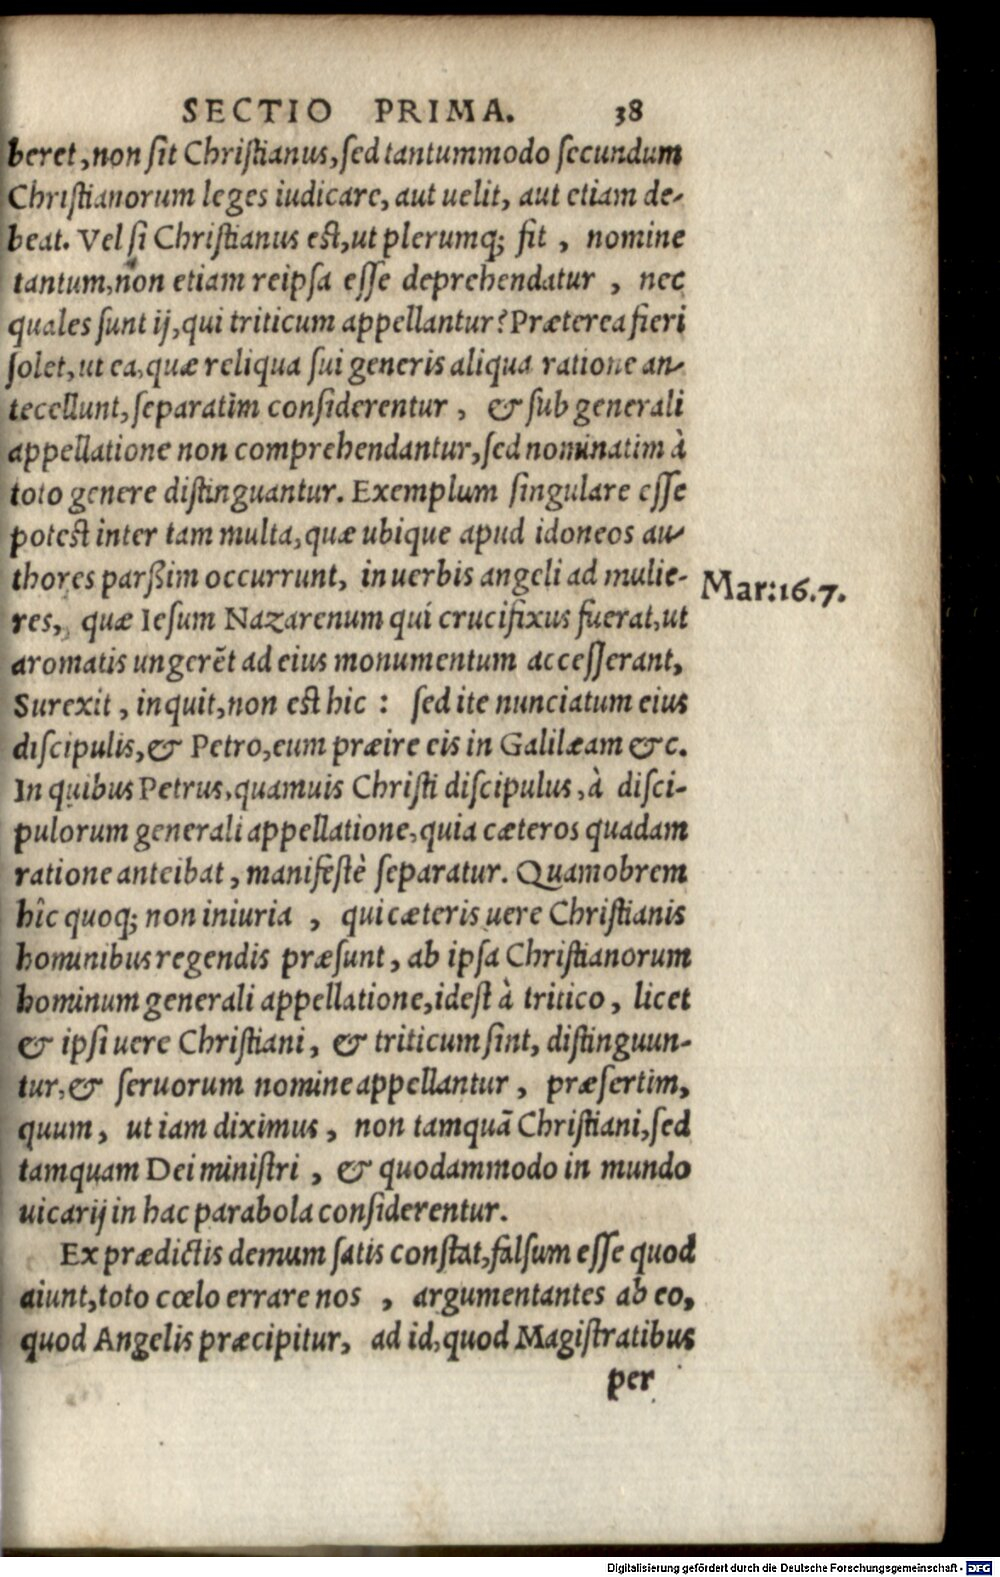 SECTIO PRIMA. 38
beret, non sit Christianus, sed tantummodo secundum
Christianorum leges iudicare, aut uelit, aut etiam de-
beat. Vel si Christianus est, ut plerumq; fit, nomine
tantum, non etiam reipsa esse deprehendatur, nec
quales sunt ij, qui triticum appellantur? Præterea fieri
solet, ut ea, quæ reliqua sui generis aliqua ratione an-
tecellunt, separatìm considerentur, & sub generali
appellatione non comprehendantur, sed nominatim à
toto genere distinguantur. Exemplum singulare esse
potest inter tam multa, quæ ubique apud idoneos au-
thores parßim occurrunt, in uerbis angeli ad mulie-
Mar: 16. 7.
res, quæ Iesum Nazarenum qui crucifixus fuerat, ut
aromatis ungerēt ad eius monumentum accesserant,
Surexit, inquit, non est hic: sed ite nunciatum eius
discipulis, & Petro, eum præire eis in Galilæam &c.
In quibus Petrus, quamuis Christi discipulus, à disci-
pulorum generali appellatione, quia cæteros quadam
ratione anteibat, manifestè separatur. Quamobrem
hîc quoq; non iniuria, qui cæteris uere Christianis
hominibus regendis præsunt, ab ipsa Christianorum
hominum generali appellatione, idest à tritico, licet
& ipsi uere Christiani, & triticum sint, distinguun-
tur, & seruorum nomine appellantur, præsertim,
quum, ut iam diximus, non tamquā Christiani, sed
tamquam Dei ministri, & quodammodo in mundo
uicarij in hac parabola considerentur.
Ex prædictis demum satis constat, falsum esse quod
aiunt, toto cœlo errare nos, argumentantes ab eo,
quod Angelis præcipitur, ad id, quod Magistratibus
per
Digitalisierung gefördert durch die Deutsche Forschungsgemeinschaft - DFG